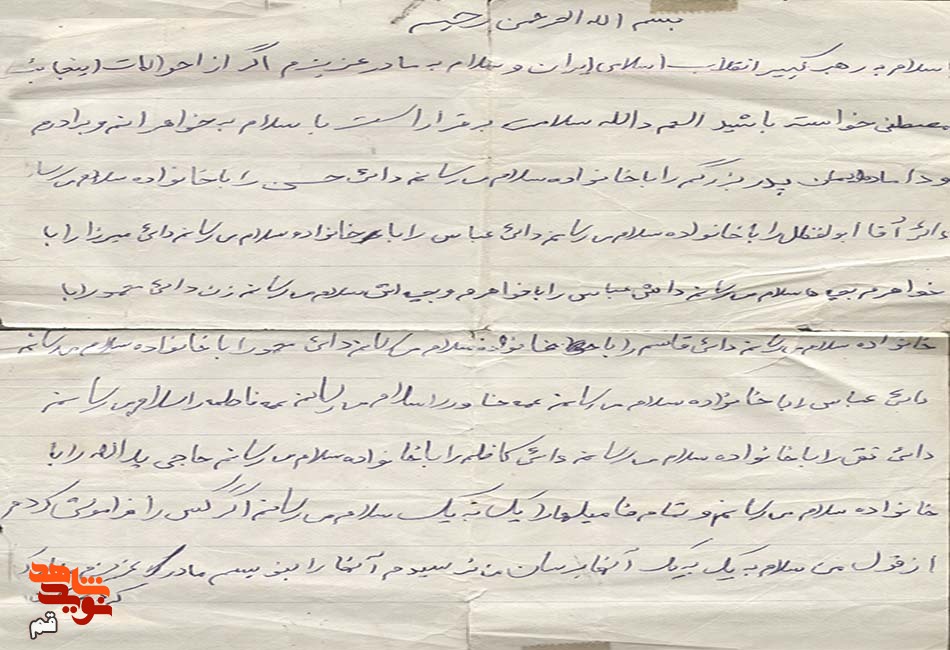 بسم الله الرحمن رحیم
سلام به رهبر کبیر انقلاب اسلامی ایران و سلام به مادر عزیزم اگر از احوالات اینجانب
مصطفی خواسته باشید الحمدالله سلامت برقرار است با سلام به خواهرانم و برادرم
و دامادمان پدر بزرگم را با خانواده سلام می رسانم دائی حسن را با خانواده سلام می رسا
دائی آقا ابولفظل را با خانواده سلام می رسانم دائی عباس را با خانواده سلام می رسانم دائی میرزا را با
خواهرم بچه ها سلام می رسانم دائی عباس را با خواهرم و بچه اش سلام می رسانم زن دائی محمود را با
خانواده سلام می رسانم دائی قاسم را با خانواده سلام می رسانم دائی محمود را با خانواده سلام می رسانم
دائی عباس را با خانواده سلام می رسانم عمه خاور را سلام می رسانم عمه فاطمه را سلام می رسانم
دائی تقی را با خانواده سلام می رسانم دائی کاظم را با خانواده سلام می رسانم حاجی یداله را با
خانواده سلام می رسانم و تمام فامیلها را یک به یک سلام می رسانم اگر کسی را فراموش کردم
از قول من سلام به یک به یک آنها برسان من نرسیدم آنها را بنویسم مادر عزیزم
نوید شاهد
قم